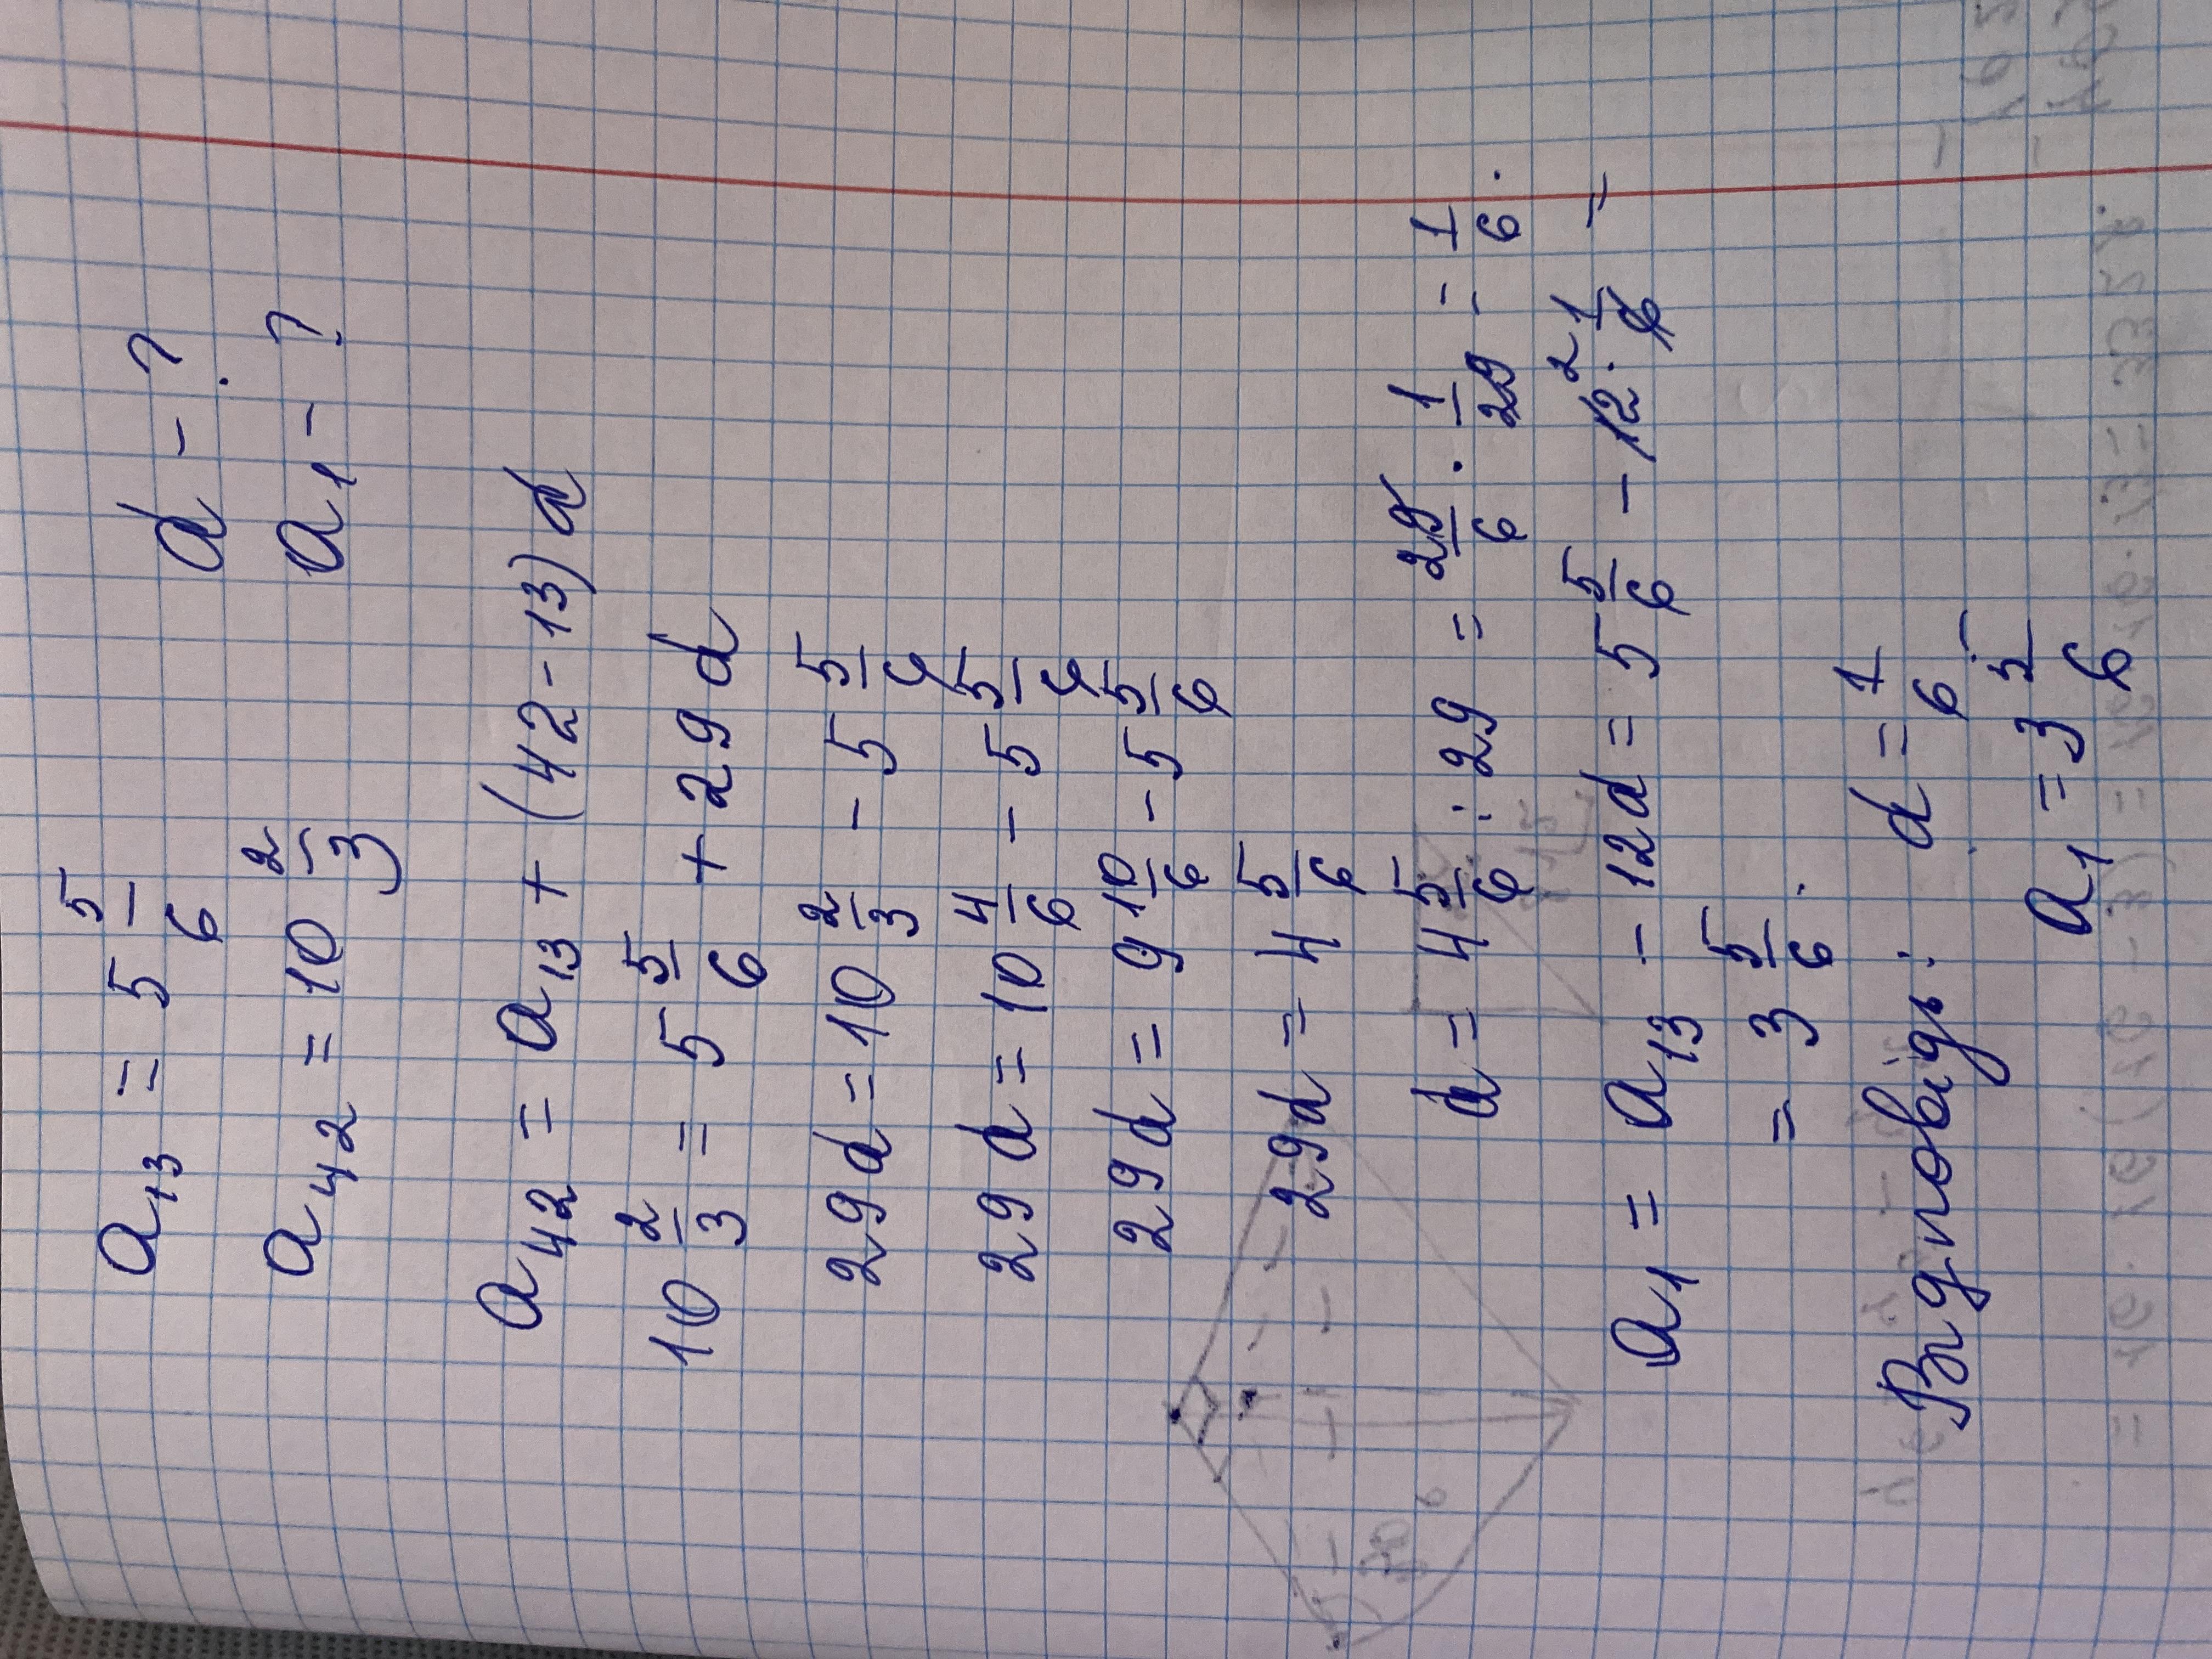 a₁₃ = 5 5/6    d - ?
a₄₂ = 10 2/3    a₁ - ?
a₄₂ = a₁₃ + (42 - 13)d
10 2/3 = 5 5/6 + 29d
29d = 10 2/3 - 5 5/6
29d = 10 4/6 - 5 5/6
29d = 9 10/6 - 5 5/6
29d = 4 5/6
d = 4 5/6 : 29 = 29/6 · 1/29 = 1/6.
a₁ = a₁₃ - 12d = 5 5/6 - 12² · 1/6 =
= 3 5/6.
Відповідь: d = 1/6
a₁ = 3 5/6